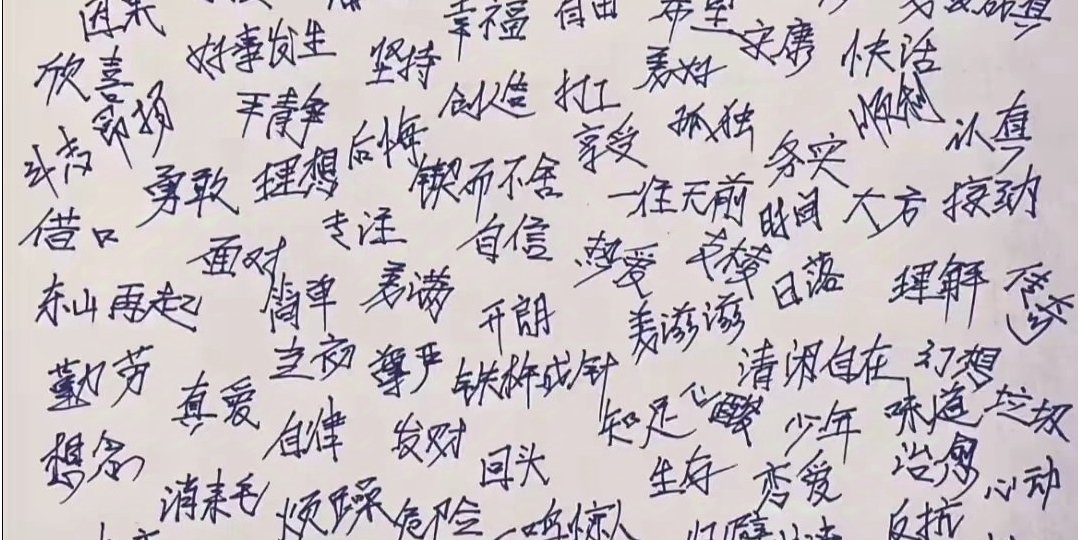 因果 幸福 自由 希望
欣喜 好事发生 坚持 美好 安康 快活
昂扬 平静 创造 打工 孤独 顺利
斗志 勇敢 理想 后悔 锲而不舍 享受 务实 认真
借口 面对 专注 自信 一往无前 时间 大方 接纳
东山再起 简单 美满 开朗 热爱 日落 理解
勤劳 真爱 当初 尊严 铁杵成针 美滋滋 清闲自在 幻想
想念 自律 发财 回头 知足 心酸 少年 味道 垃圾
烦躁 危险 一鸣惊人 生存 恋爱 治愈 心动
反抗